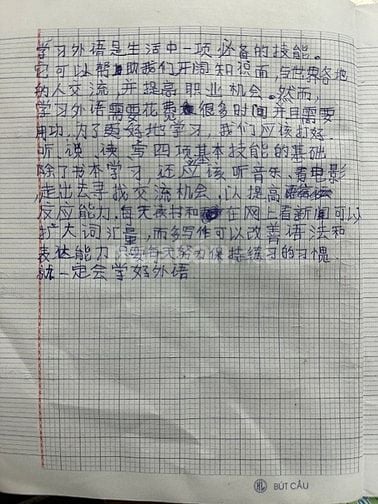 学习外语是生活中一项必备的技能。
它可以帮助我们开阔知识面,与世界各地
的人交流,并提高职业机会。然而,
学习外语需要花费很多时间并且需要
用功。为了更好地学习,我们应该打好
听说读写四项基本技能的基础
除了书本学习,还应该听音乐、看电影
,走出去寻找交流机会,以提高
反应能力。每天读书和在网上看新闻可以
扩大词汇量,而多写作可以改善语法和
表达能力,只要每天努力保持练习的习惯
就一定会学好外语
BÚT CẦU